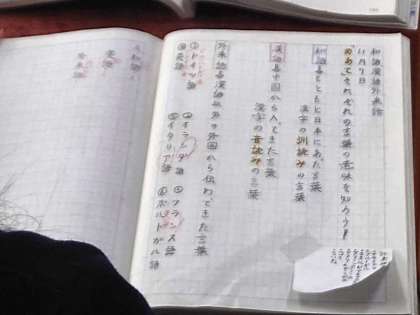 和語漢語外来語
めあてそれぞれの言葉の意味を知ろう!
和語 もともと日本にあった言葉
漢字の訓読みの言葉
漢語 中国から入ってきた言葉
漢字の音読みの言葉
外来語 漢語以外の外国から伝わってきた言葉
ドイツ語 オランダ語 フランス語
英語 イタリア語 ポルトガル語
和語
漢語
外来語